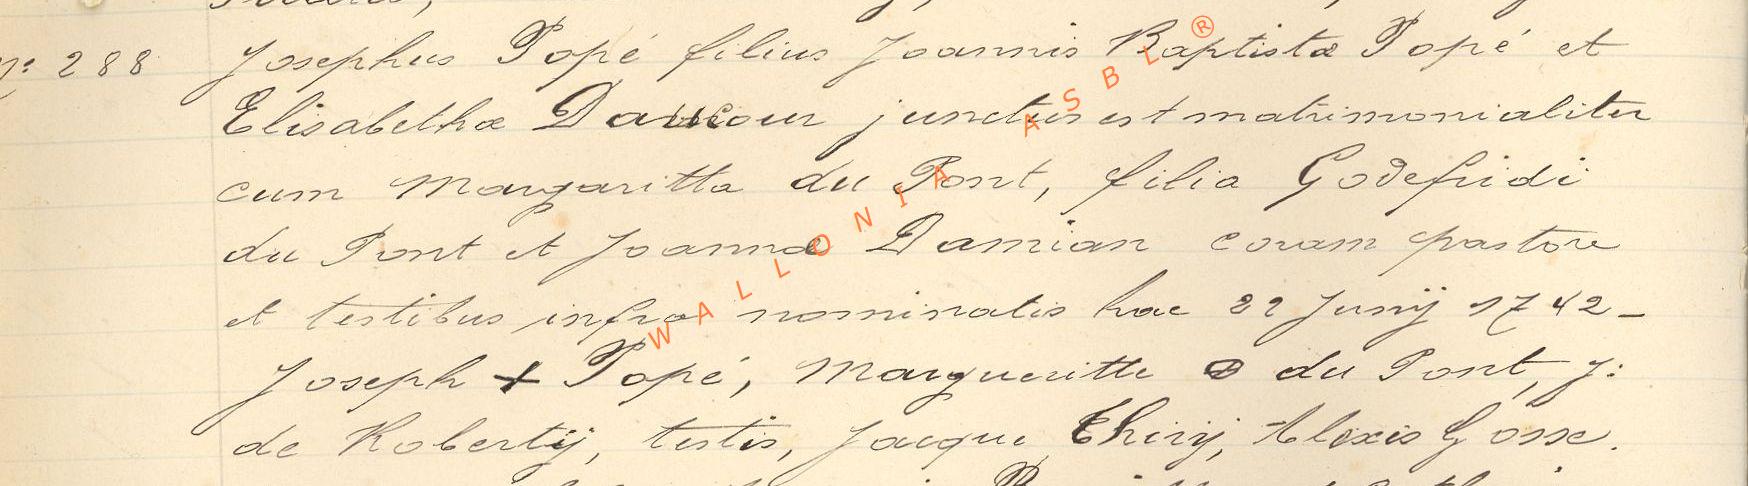 N: 288 Josephus Popé filius Joannis Baptistæ Popé et
Elisabethæ junctus est matrimonialiter
cum Margaritta du Pont, filia Godefridi
du Pont et Joannæ Damian coram pastore
et testibus infra nominatis hac 22 Junij 1742 –
Joseph + Popé, Margueritte du Pont, J:
de Robertij, testis, Jacque Thirij, Alexis Gosse.
WALLONIA ASBL ®